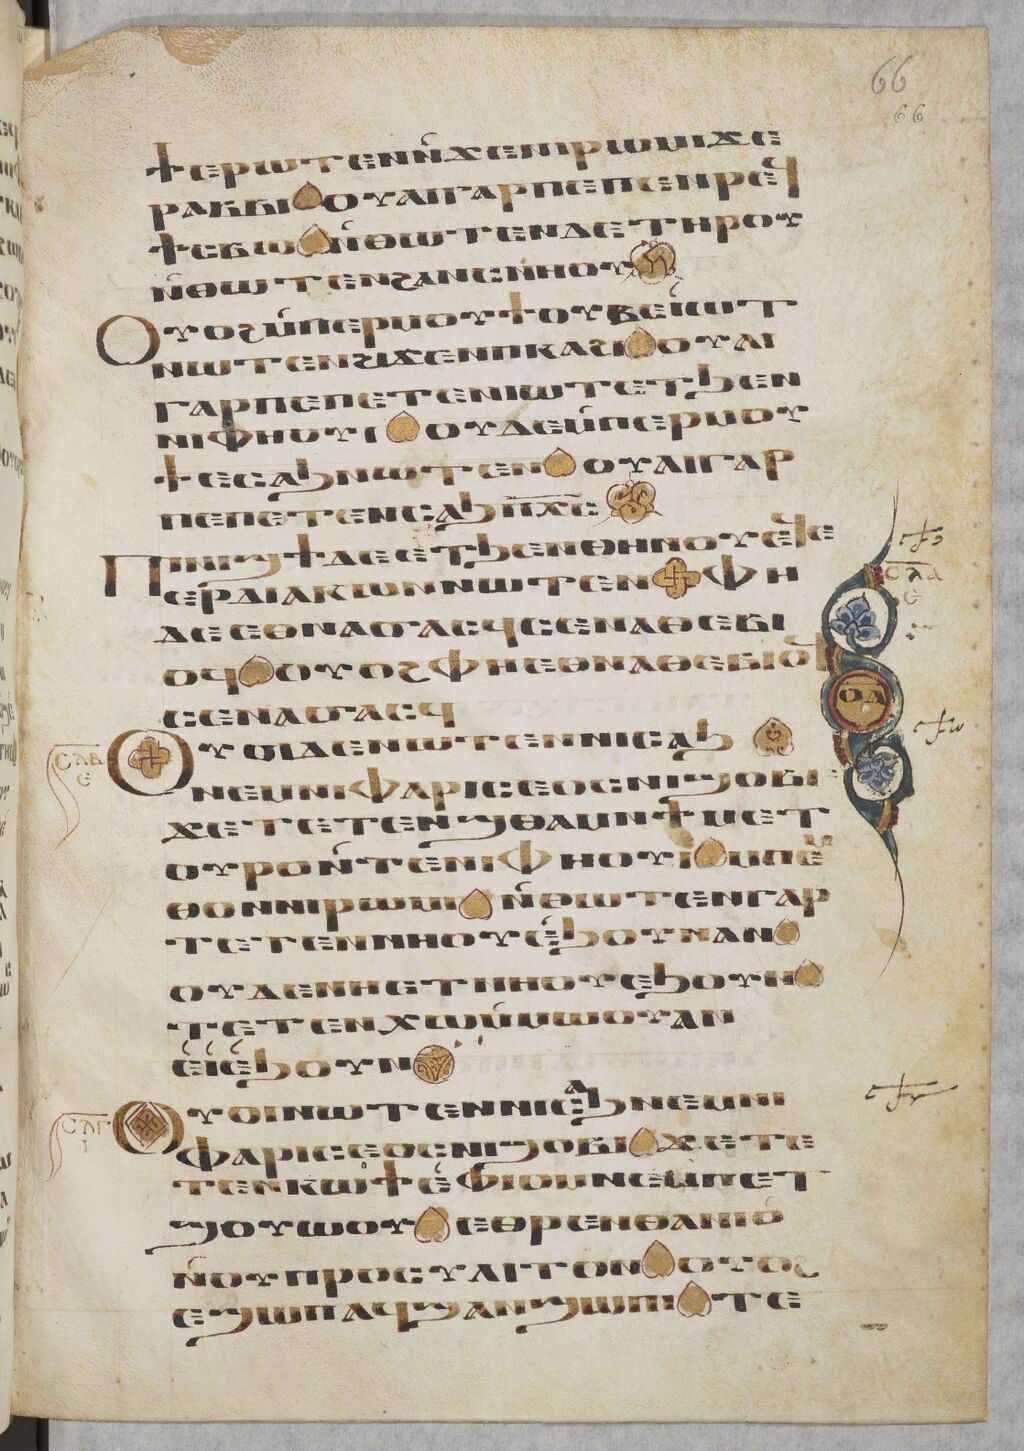 66
66
ϯⲉⲣⲱⲧⲉⲛⲛ̀ϫⲉⲛⲓⲣⲱⲙⲓϫⲉ
ⲣⲁⲃⲃⲓ ⲟⲩⲁⲓⲅⲁⲣⲡⲉⲡⲉⲧⲉⲛⲣⲉϥ
ϯⲥⲃⲱ ⲛ̀ⲑⲱⲧⲉⲛⲇⲉⲧⲏⲣⲟⲩ
ⲛ̀ⲑⲱⲧⲉⲛϩⲁⲛⲥⲛⲏⲟⲩ
Ⲟⲩⲟϩⲙ̀ⲡⲉⲣⲙⲟⲩϯⲟⲩⲃⲉⲓ̀ⲱⲧ
ⲛⲱⲧⲉⲛϩⲓϫⲉⲛⲡⲕⲁϩⲓ ⲟⲩⲁⲓ
ⲅⲁⲣⲡⲉⲡⲉⲧⲉⲛⲓⲱⲧⲉⲧϧⲉⲛ
ⲛⲓⲫⲏⲟⲩⲓ ⲟⲩⲇⲉⲙ̀ⲡⲉⲣⲙⲟⲩ
ϯⲉⲥⲁϧⲛⲱⲧⲉⲛ ⲟⲩⲁⲓⲅⲁⲣ
ⲡⲉⲡⲉⲧⲉⲛⲥⲁϧⲡⲭ̅ⲥ̅
Ⲡⲓⲛⲓϣϯⲇⲉⲉⲧϧⲉⲛⲑⲏⲛⲟⲩⲉϥⲉ
ⲉⲣⲇⲓⲁⲕⲱⲛⲛⲱⲧⲉⲛ ⲫⲏ
ⲇⲉⲉⲑⲛⲁϭⲁⲥϥⲥⲉⲛⲁⲑⲉⲃⲓ
ⲟϥ ⲟⲩⲟϩⲫⲏⲉⲑⲛⲁⲑⲉⲃⲓⲟϥ
ⲥⲉⲛⲁϭⲁⲥϥ
ⲥⲗⲁ
ⲉ
ⲟⲇ
Ⲟⲩⲟⲓⲇⲉⲛⲱⲧⲉⲛⲛⲓⲥⲁϧ
ⲥⲗⲃ
ⲉ
ⲛⲉⲙⲛⲓⲫⲁⲣⲓⲥⲉⲟⲥⲛⲓϣⲟⲃⲓ
ϫⲉⲧⲉⲧⲉⲛϣⲑⲁⲙⲛϯⲙⲉⲧ
ⲟⲩⲣⲟⲛ̀ⲧⲉⲛⲓⲫⲏⲟⲩⲓ̀ ⲙⲡⲉⲙ
ⲑⲟⲛⲛⲓⲣⲱⲙⲓ ⲛ̀ⲑⲱⲧⲉⲛⲅⲁⲣ
ⲧⲉⲧⲉⲛⲛⲏⲟⲩⲉ̀ϧⲟⲩⲛⲁⲛ
ⲟⲩⲇⲉⲛⲏⲉⲧⲛⲏⲟⲩⲉϧⲟⲩⲛ
ⲧⲉⲧⲉⲛⲭⲱⲙ̀ⲙⲱⲟⲩⲁⲛ
ⲉ̀ⲓ̀ⲉ̀ϧⲟⲩⲛ
Ⲟⲩⲟⲓⲛⲱⲧⲉⲛⲛⲓⲥⲁϧⲛⲉⲙⲛⲓ
ⲥⲗⲅ
ⲓ
ⲫⲁⲣⲓⲥⲉⲟⲥⲛⲓϣⲟⲃⲓ ϫⲉⲧⲉ
ⲧⲉⲛⲕⲱϯⲉ̀ⲫⲓⲟⲙⲛⲉⲙⲡⲉⲧ
ϣⲟⲩⲱⲟⲩ ⲉⲑⲣⲉⲛⲑⲁⲙⲓⲟ̀
ⲛ̀ⲟⲩⲡⲣⲟⲥⲩⲗⲓⲧⲟⲛ ⲟⲩⲟϩ
ⲉϣⲱⲡⲁϥϣⲁⲛϣⲱⲡⲓ ⲧⲉ